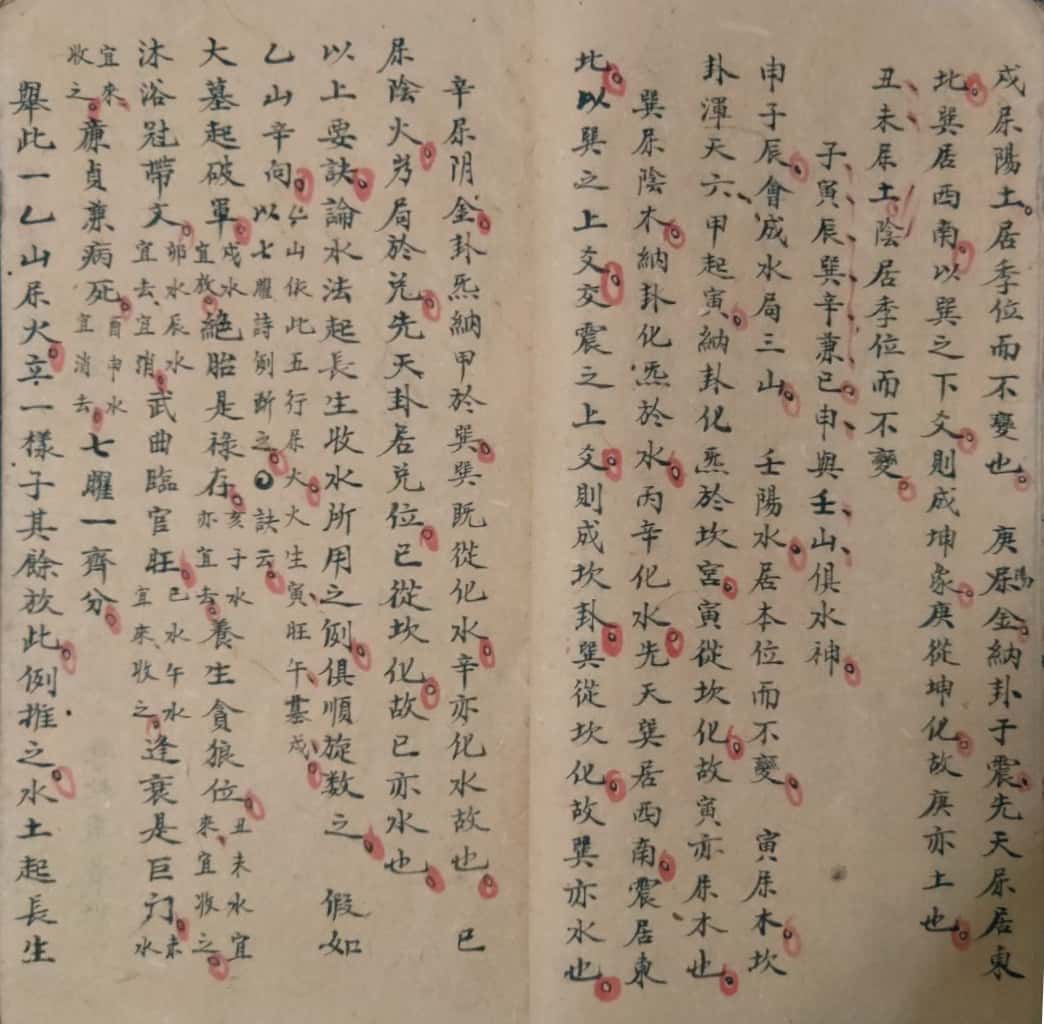 戌属陽土居季位而不變也 庚属陽金納卦于震先天属居東
北巽居西南以巽之下爻則成坤象庚從坤化故庚亦土也
丑未属土陰居季位而不變
子寅辰巽辛兼巳申與壬山俱水神
申子辰會成水局三山 壬陽水居本位而不變 寅属木坎
卦渾天六甲起寅納卦化炁於坎宮寅從坎化故寅亦属木也
巽属陰木納卦化炁於水丙辛化水先天巽居西南震居東
北以巽之上爻交震之上爻則成坎卦巽從坎化故巽亦水也
辛属阴金卦炁納甲於巽巽既從化水辛亦化水故也 巳
属陰火为局於兌先天卦居兌位巳從坎化故巳亦水也
以上要訣論水法起長生收水所用之例俱順旋数之 假如
乙山辛向乙山依此五行属火火生寅旺午墓戌以七曜詩例断之訣云
大墓起破軍戌水宜放絕胎是禄存亥子水亦宜去養生貪狼位丑未水宜來宜收之
沐浴冠帶文卯水辰水宜去宜消武曲臨官旺巳水午水宜來收之逢衰是巨门未水
宜來收之廉貞兼病死酉申水宜消去七曜一齊分
舉此一乙山属火立一樣子其餘放此例推之水土起長生